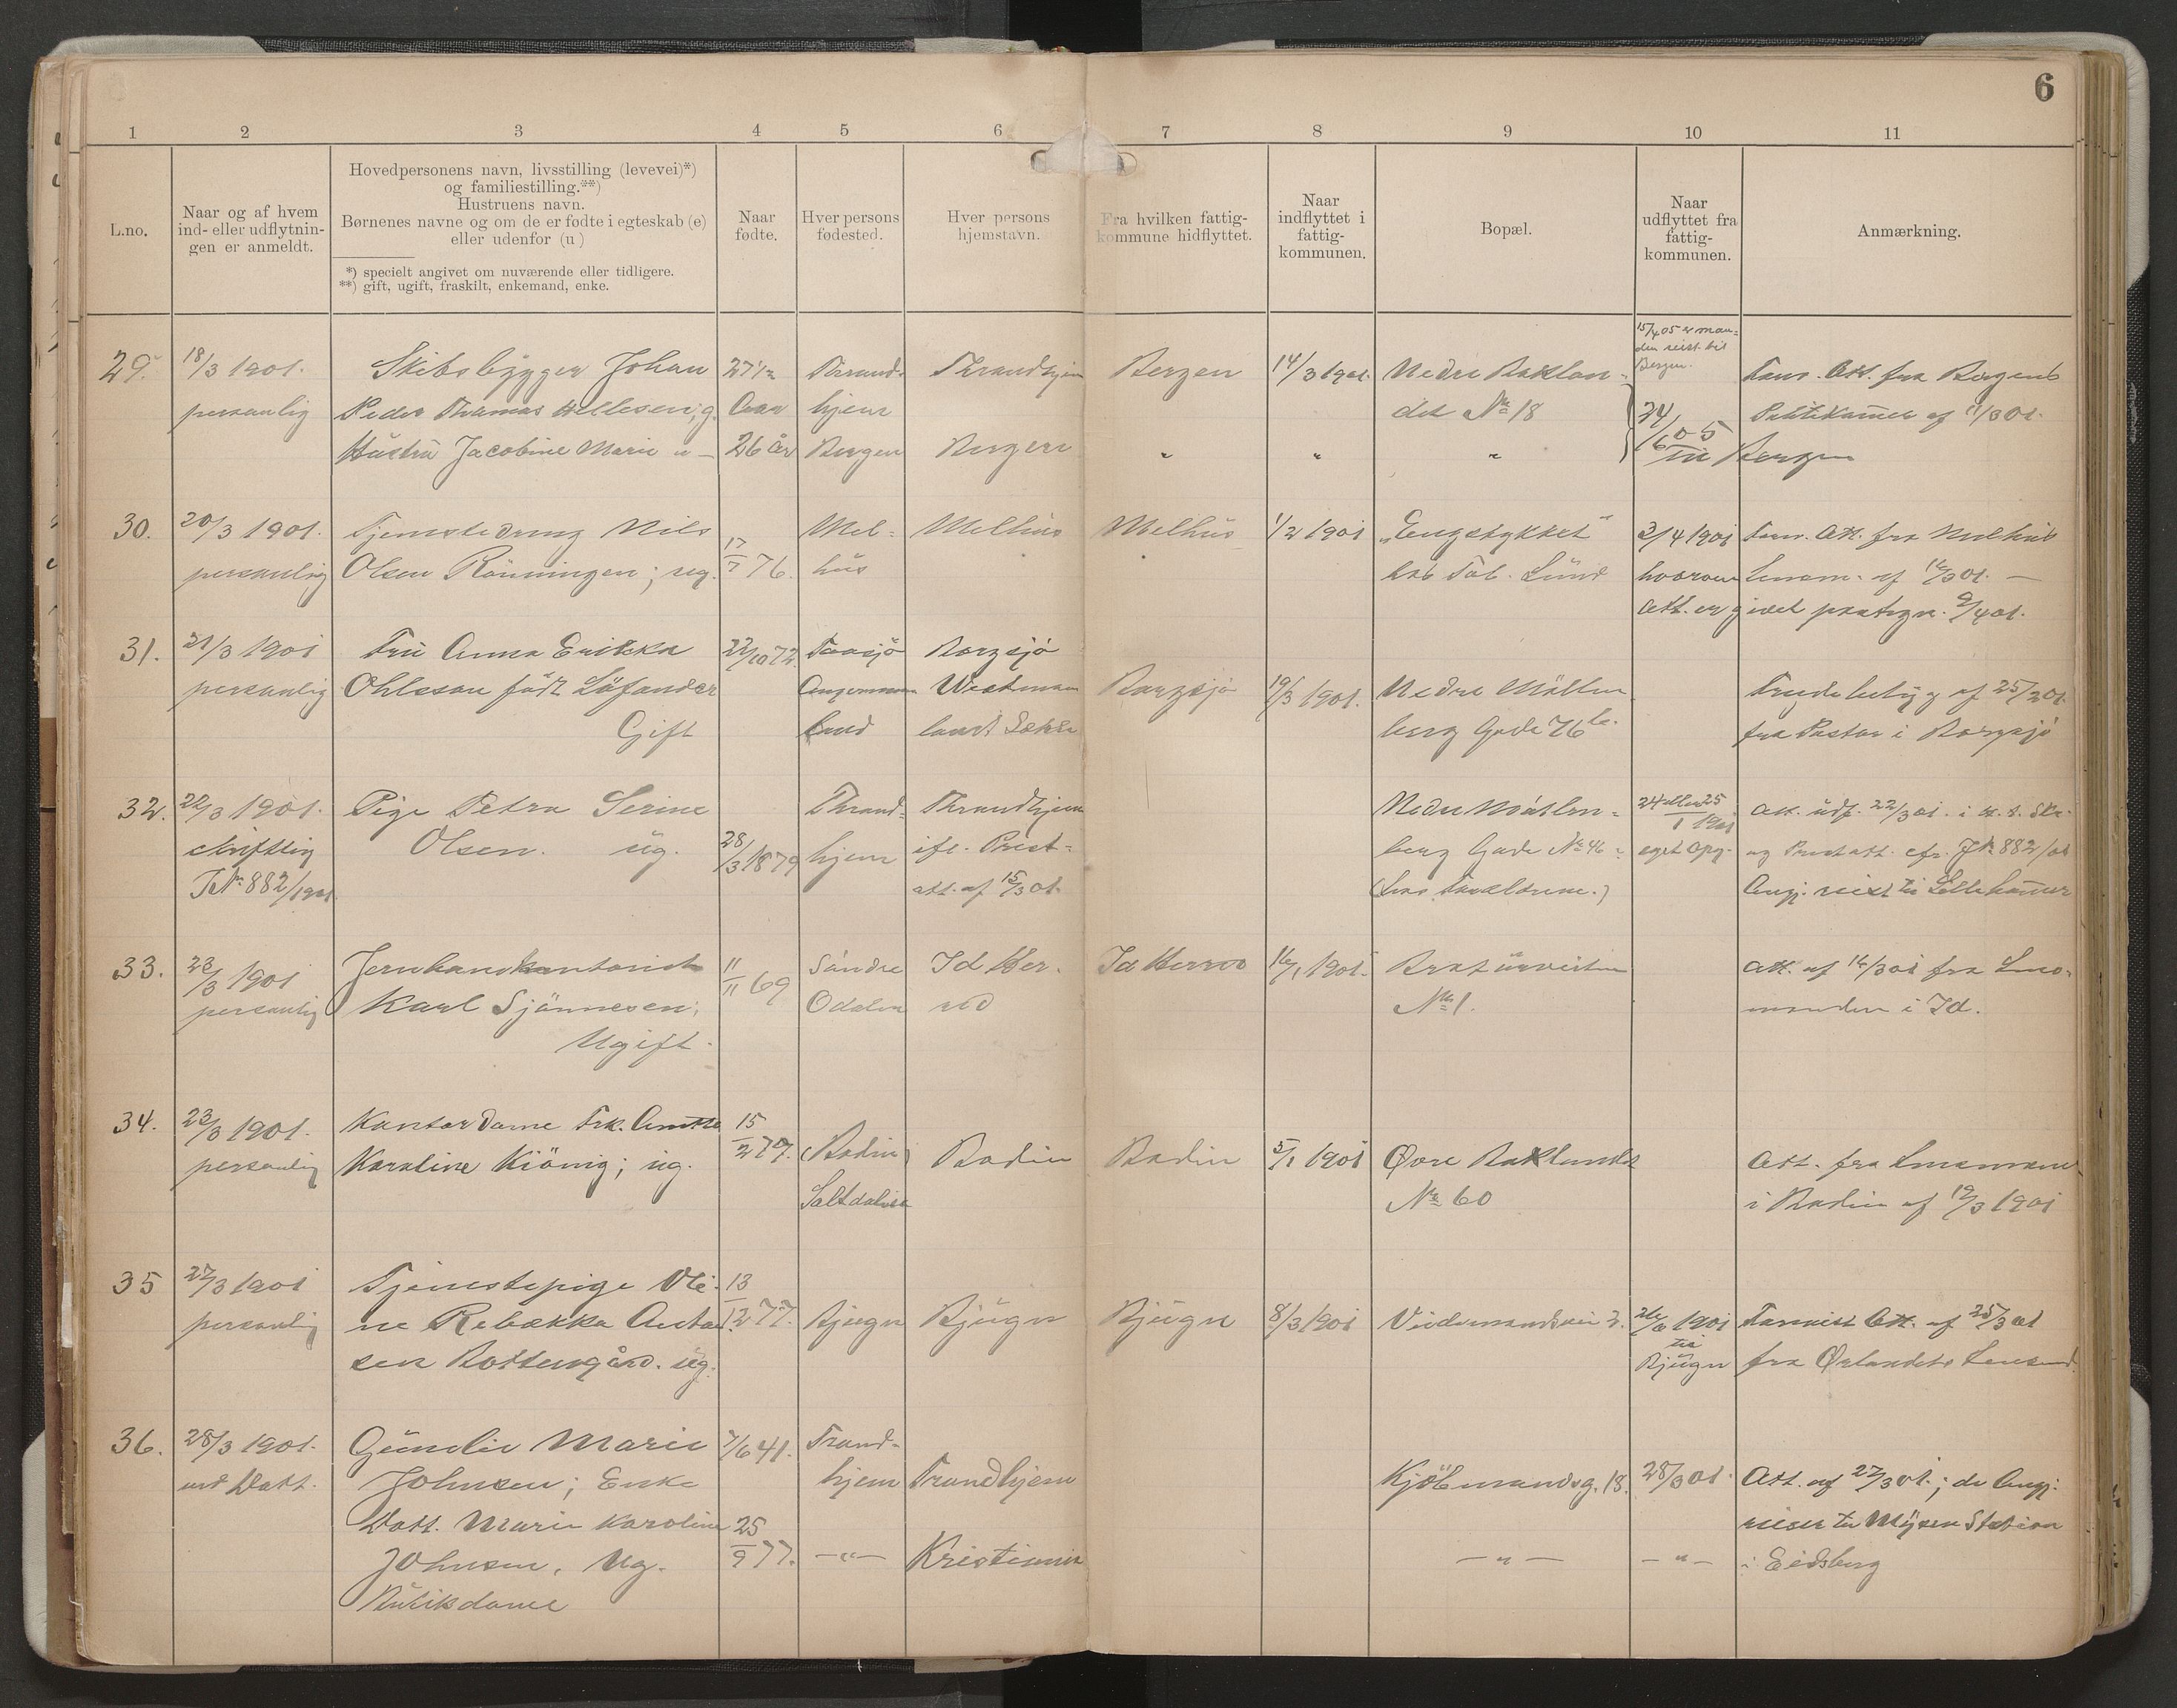 6
1 2 3 4 5 6 7 8 9 10 11
L.no.
Naar og af hvem
ind- eller udflytnin-
gen er anmeldt.
Hovedpersonens navn, livsstilling (levevei)*)
og familiestilling.**)
Hustruens navn.
Børnenes navne og om de er fødte i egteskab (e)
eller udenfor (u)
*) specielt angivet om nuværende eller tidligere.
**) gift, ugift, fraskilt, enkemand, enke.
Naar
fødte.
Hver persons
fødested.
Hver persons
hjemstavn.
Fra hvilken fattig-
kommune hidflyttet.
Naar
indflyttet i
fattig-
kommunen.
Bopæl.
Naar
udflyttet fra
fattig-
kommunen.
Anmærkning.
29.
18/3 1901.
personlig
Skibsbygger Johan
Peder Thomas Hellesen; g.
Hustru Jacobine Marie
27 1/2
Aar
26 år
Thrond-
hjem
Bergen
Throndhjem
Bergen
Bergen
"
14/3 1901.
"
Nedre Baklan-
det No 18
"
15/4 05 er man-
den reist til
Bergen.
24/6 05
til Bergen
Att. fra Bergens
Politikammer af 11/3 01.
30.
20/3 1901.
personlig
Tjenestedreng Nils
Olsen Rönningen; ug.
17/7 76.
Mel-
hus
Melhus
Melhus
1/2 1901
"Engstykket"
hos Lund
3/4 1901
hvorom
Att. er givet paategn. 2/4 01.
Att. fra Melhus
Lensm. af 16/3 01. —
31.
21/3 1901
personlig
Fru Anna Erikka
Ohlsson födt Löfander
Gift
22/10 72.
Taasjö
Angermann
land
Borgsjö
Westman
land
Borgsjö
19/3 1901.
Nedre Möllen
berg Gade 76
af 25/2 01.
fra Pastor i Borgsjö
32.
22/3 1901.
skriftlig
JNo 882/1901
Pige Petra Serine
Olsen. ug.
28/3 1879
Thrond-
hjem
Throndhjem
ifl. Prest-
att. af 15/3 01.
Nedre Möllen-
berg Gade No 46
(hos Forældrene.)
24 eller 25
1 1901
eget Opg.
Att. udf. 22/3 01. i
og Prestatt. cfr. JNo 882/01
Angj. reist til Lillehammer
33.
23/3 1901
personlig
Jernbanekontorist
Karl Sjönnesen;
Ugift.
11/11 69
Söndre
Odalen
Id Her-
red
Id Herred
16/1 1901.
Bratörveiten
No 1.
Att. af 16/3 01 fra Lens-
manden i Id.
34.
23/3 1901.
personlig
Kontordame Frk.
Karoline Kiönig; ug.
15/2 77.
(Bodin)
Saltdalen
Bodin
Bodin
5/1 1901
Øvre Baklandet
No 60
Att. fra Lensmand
i Bodin af 19/3 1901
35
27/3 1901
personlig
Tjenestepige Oli-
ne Rebekka Anton
sen Bottengård. ug.
13/12 77.
Bjugn
Bjugn
Bjugn
8/3 1901
Vindemandsvei 2.
1901
til
Bjugn
Forevist Att. af 25/3 01
fra Ørlandets Lensmd.
36.
28/3 1901.
ved Datt.
Gunelie Marie
Johnsen; Enke
Datt. Marie Karoline
Johnsen, Ug.
Butikdame
7/6 41.
25/9 77.
Trond-
hjem
— " —
Trondhjem
Kristiania
Kjöbmandsg. 18.
— " —
28/3 01.
— " —
Att. af 27/3 01.; de Angj.
reiser til Mysen Station
i Eidsberg